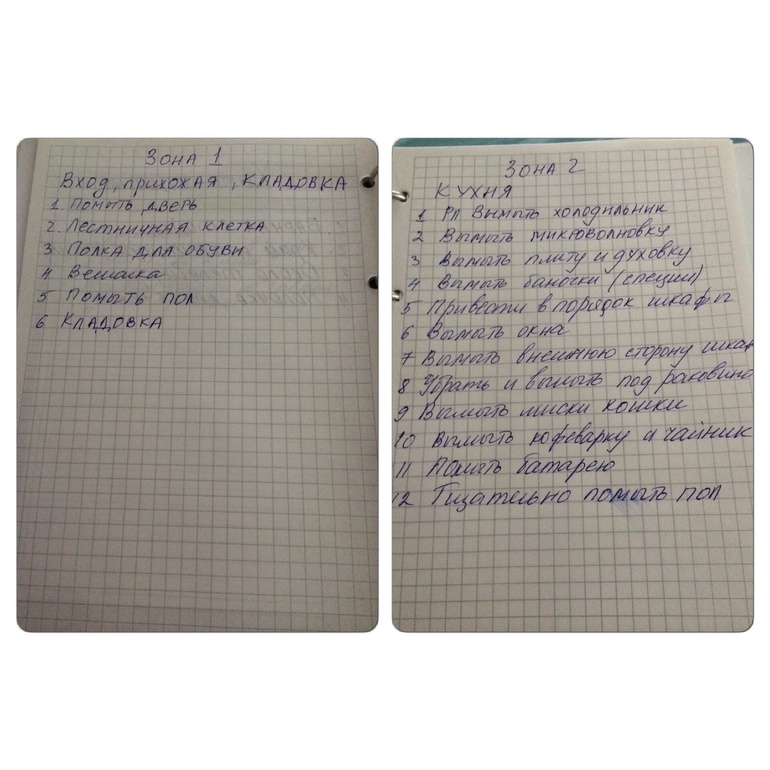 Зона 1
Вход, прихожая, кладовка
1 Помыть дверь
2 Лестничная клетка
3 Полка для обуви
4 Вешалка
5 Помыть пол
6 Кладовка
Зона 2
Кухня
1 Вымыть холодильник
2 Вымыть микроволновку
3 Вымыть плиту и духовку
4 Вымыть баночки (специи)
5 Привести в порядок шкафы
6 Вымыть окна
7 Вымыть внешнюю сторону шка
8 Убрать и вымыть под раковино
9 Вымыть миски кошки
10 Вымыть кофеварку и чайник
11 Помыть батарею
12 Тщательно помыть пол